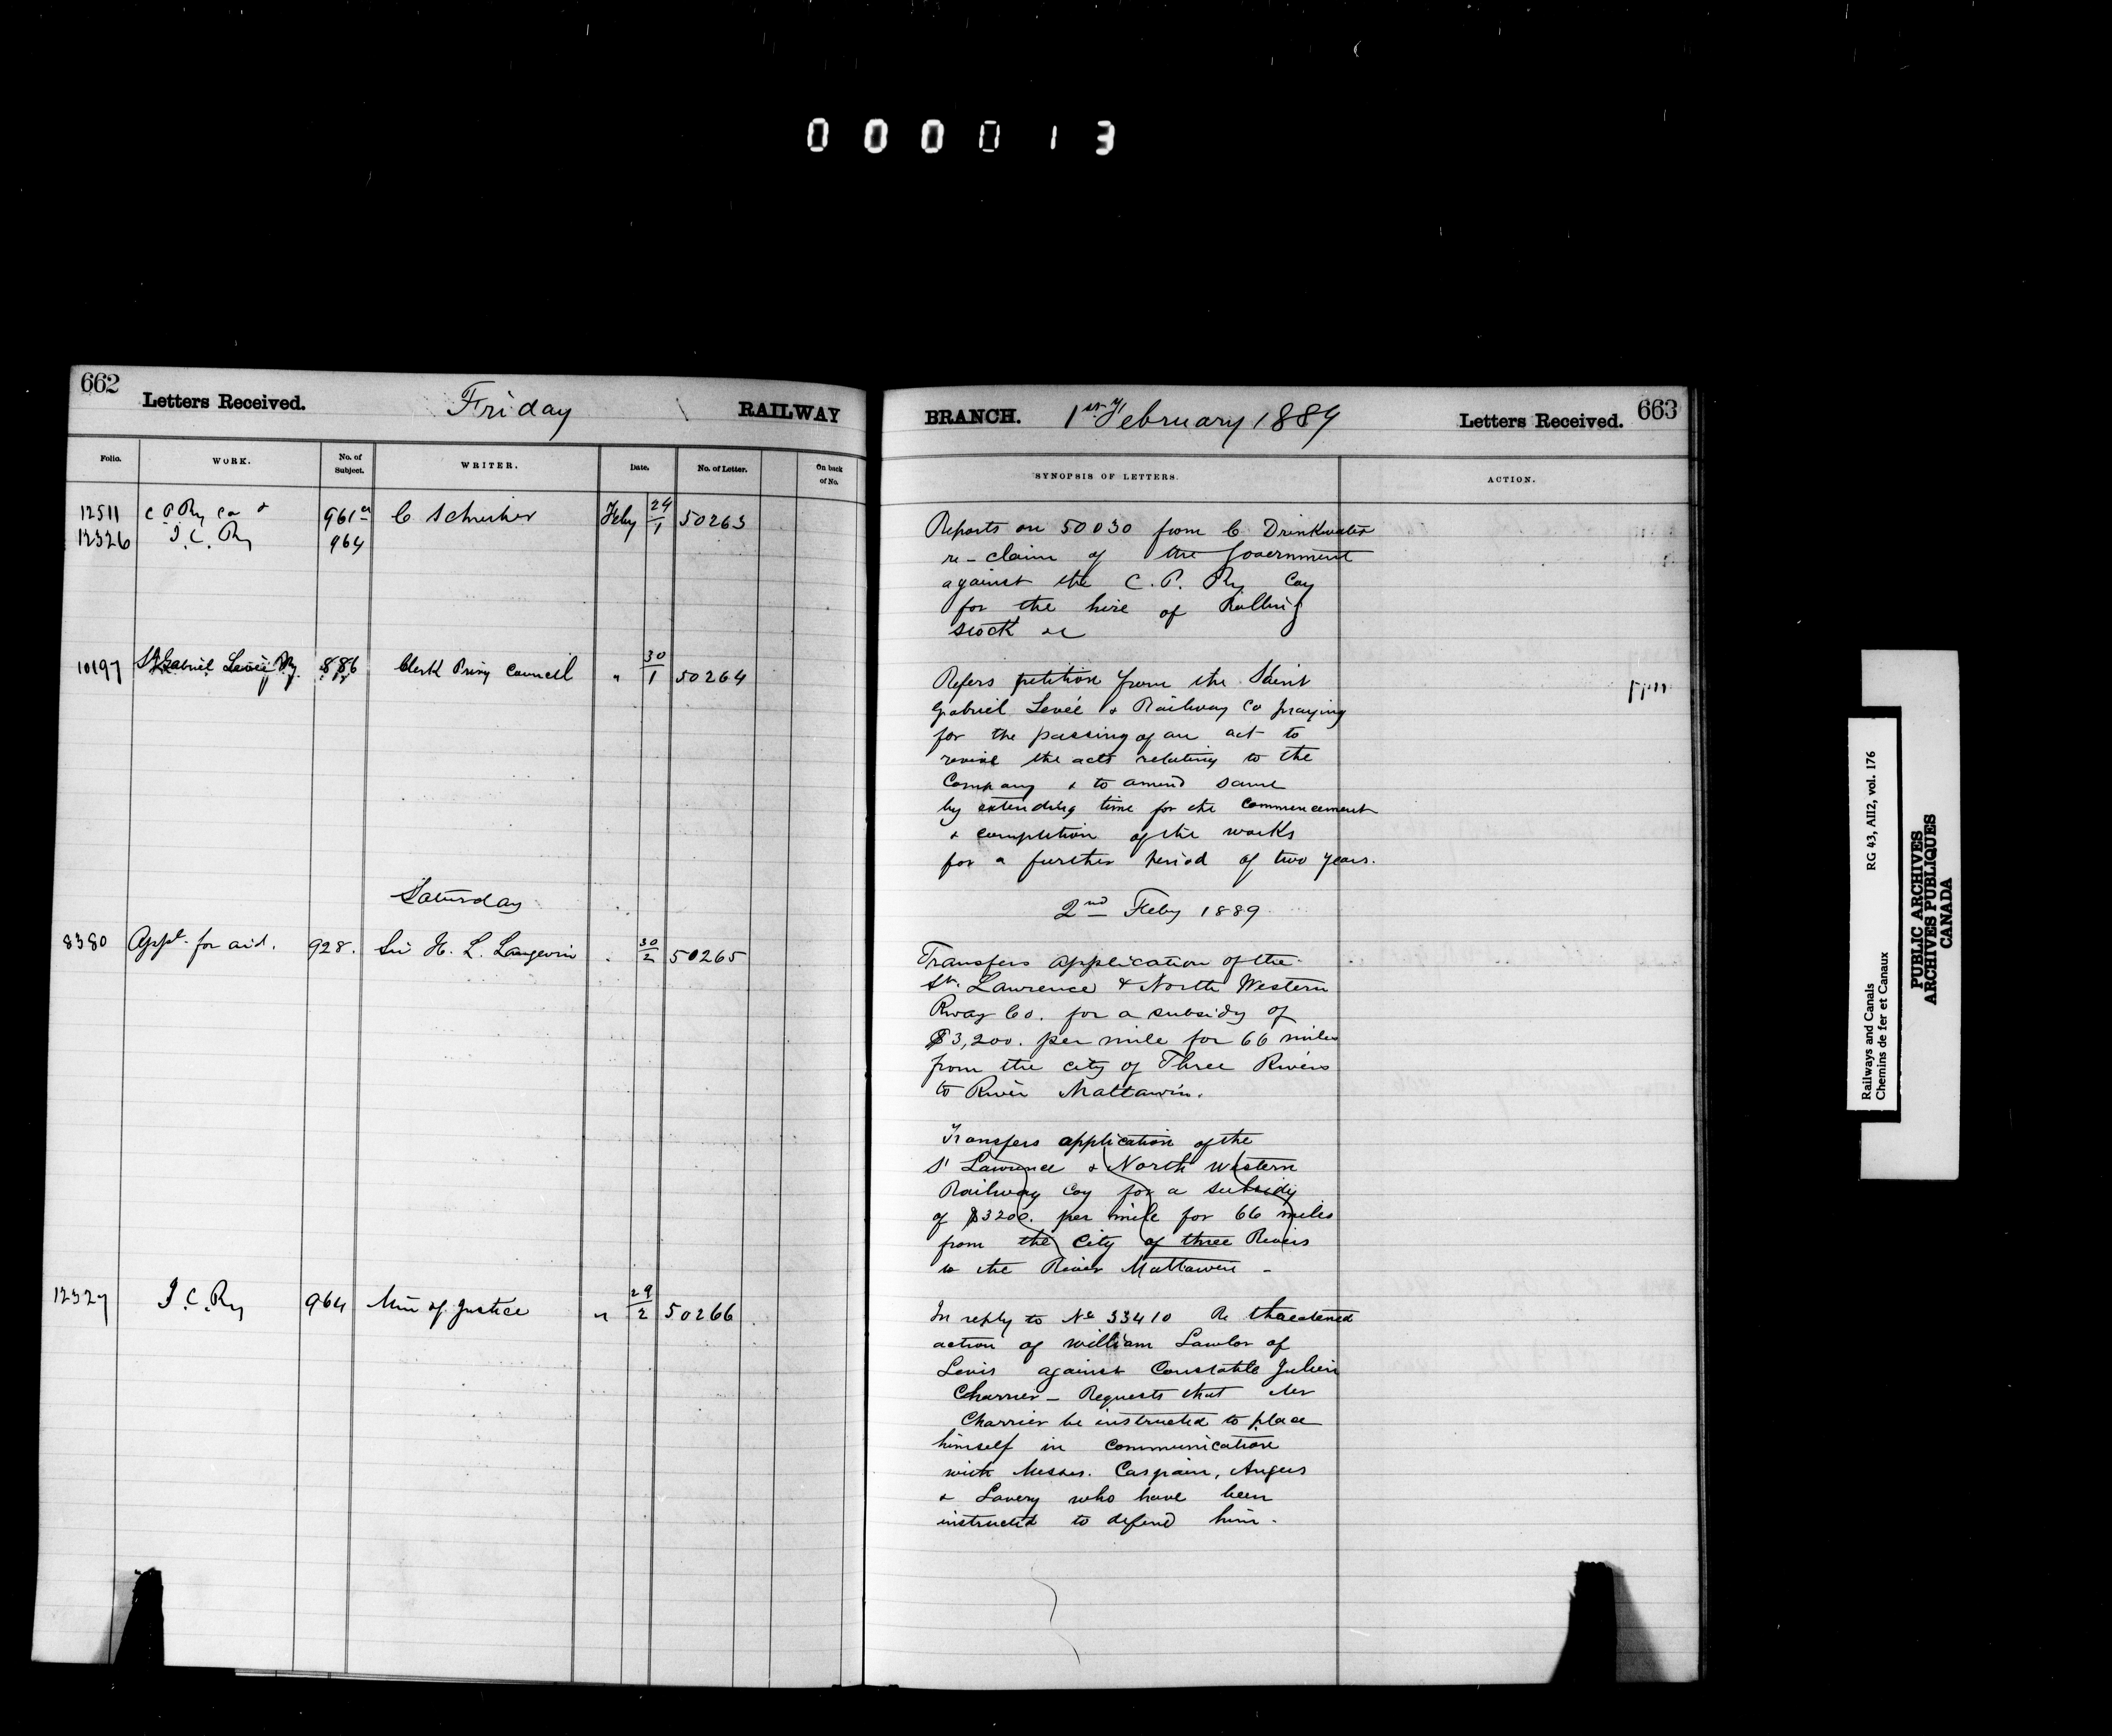 000013
662
Letters Received.
Friday
RAILWAY
BRANCH.
1st February 1889
Letters Received.
663
Folio.
WORK.
No. of Subject.
WRITER.
Date.
No. of Letter.
On back of No.
SYNOPSIS OF LETTERS.
ACTION.
12511 C P Ry Co & 961 C Schreiber Feby 24/1 50263
12326 I. C. Ry 964
Reports on 50030 from C Drinkwater
re-claim of the Government
against the C. P. Ry Coy
for the hire of Rolling
stock &c
10197 St Gabriel Levée Ry. 886 Clerk Privy Council " 30/1 50264
Refers petition from the Saint
Gabriel Levée & Railway Co praying
for the passing of an act to
revive the acts relating to the
Company & to amend same
by extending time for the commencement
& completion of the works
for a further period of two years.
Saturday
2nd Feby 1889
8380 Appt. for aid. 928. Sir H. L. Langevin " 30/2 50265
Transfers application of the
St. Lawrence & North Western
Rway Co. for a subsidy of
$3,200. per mile for 66 miles
from the city of Three Rivers
to River Mattawin.
Transfers application of the
St Lawrence & North Western
Railway Coy for a subsidy
of $3200. per mile for 66 miles
from the City of three Rivers
to the River Mattawin -
12327 I. C. Ry 964 Min of Justice " 29/2 50266
In reply to No 33410 Re threatened
action of William Lawlor of
Levis against Constable Julien
Charrier - Requests that Mr
Charrier be instructed to place
himself in communication
with Messrs. Casgrain, Angers
& Lavery who have been
instructed to defend him.
Railways and Canals
Chemins de fer et Canaux
RG 43, AII2, vol. 176
PUBLIC ARCHIVES
ARCHIVES PUBLIQUES
CANADA